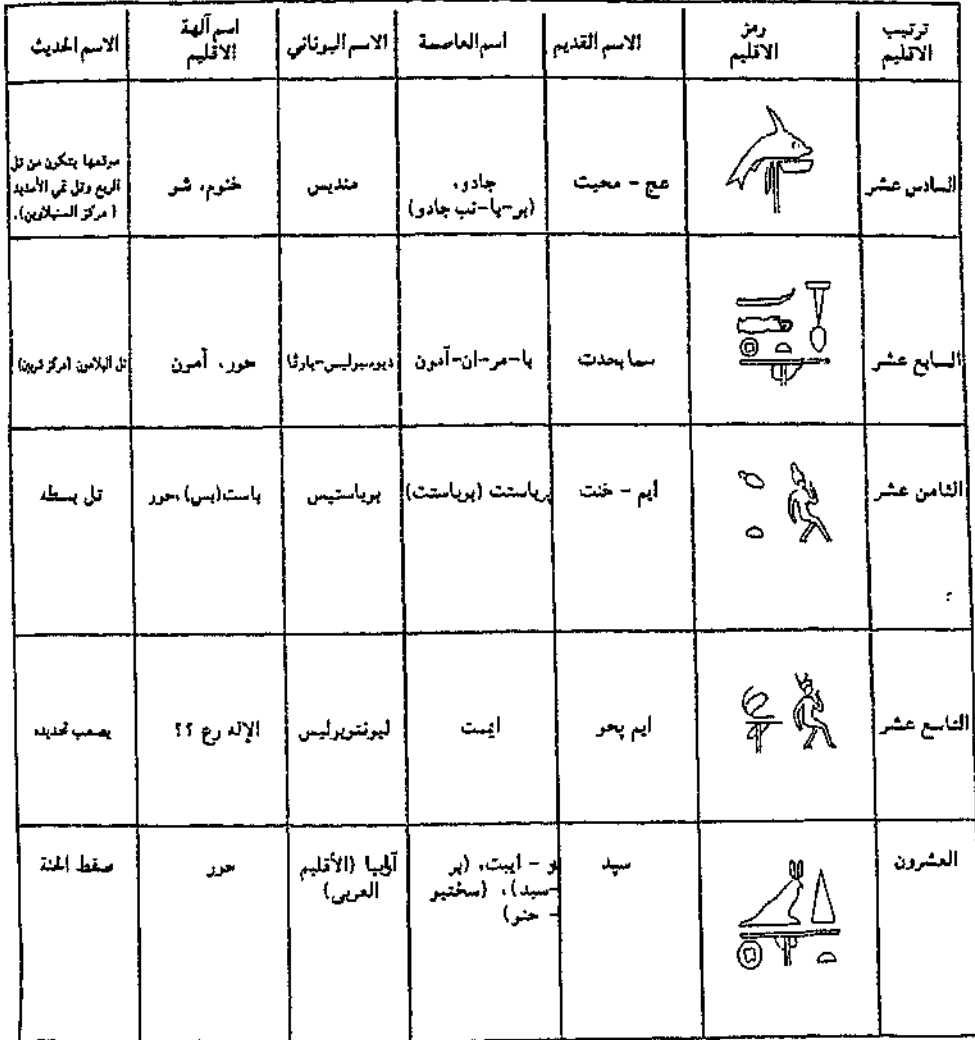 ترتيب الاقليم
رمز الاقليم
الاسم القديم
اسم العاصمة
الاسم اليوناني
اسم آلهة الاقليم
الاسم الحديث
السادس عشر
عج - محيت
جادو،
(بر-با-نب جادو)
منديس
خنوم، شو
موقعها يتكون من تل
الربع وتل تمي الأمديد
(مركز السنبلاوين).
السابع عشر
سما بحدت
با-مر-ان-آمون
ديوسبوليس-بارفا
حور، أمون
تل البلامون (مركز شربين)
الثامن عشر
ايم - خنت
برباستت (بوباستت)
بوباستيس
باست (بس)، حور
تل بسطه
التاسع عشر
ايم پحو
ايمت
ليونتوبوليس
الإله رع ؟؟
يصعب تحديده
العشرون
سپد
و - ايبت، (بر
-سبد)، (سختبو
- حنو)
آرابيا (الأقليم
العربى)
حور
صفط الحنة